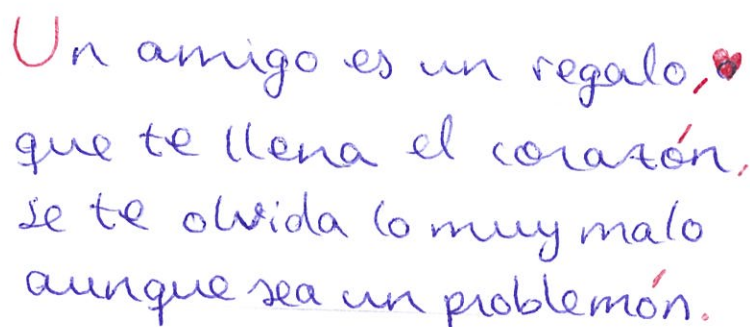 Un amigo es un regalo,
que te llena el corazón,
se te olvida lo muy malo
aunque sea un problemón.